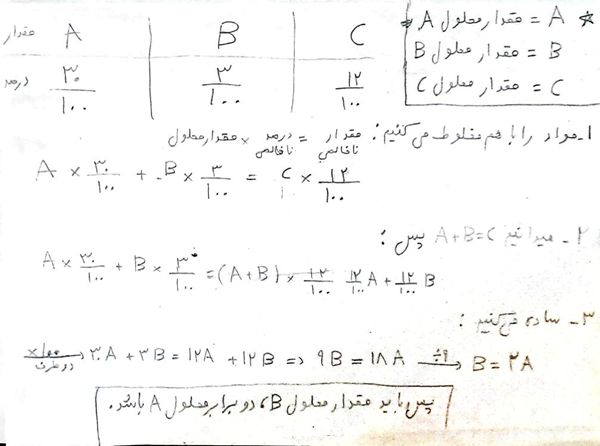 مقدار A B C
درصد ۳۰/۱۰۰ ۳/۱۰۰ ۱۲/۱۰۰
☆ A = مقدار محلول A
B = مقدار محلول B
C = مقدار محلول C
۱ـ مواد را با هم مخلوط می‌کنیم: مقدار ناخالصی = درصد ناخالصی × مقدار محلول
A × ۳۰/۱۰۰ + B × ۳/۱۰۰ = C × ۱۲/۱۰۰
۲ـ میدانیم A+B=C پس:
A × ۳۰/۱۰۰ + B × ۳/۱۰۰ = (A+B) × ۱۲/۱۰۰ ۱۲/۱۰۰ A + ۱۲/۱۰۰ B
۳ـ ساده می‌کنیم:
×۱۰۰ دو طرف → ۳۰A + ۳B = ۱۲A + ۱۲B => ۹B = ۱۸A ÷۹ → B = ۲A
پس باید مقدار محلول B، دو برابر محلول A باشد.